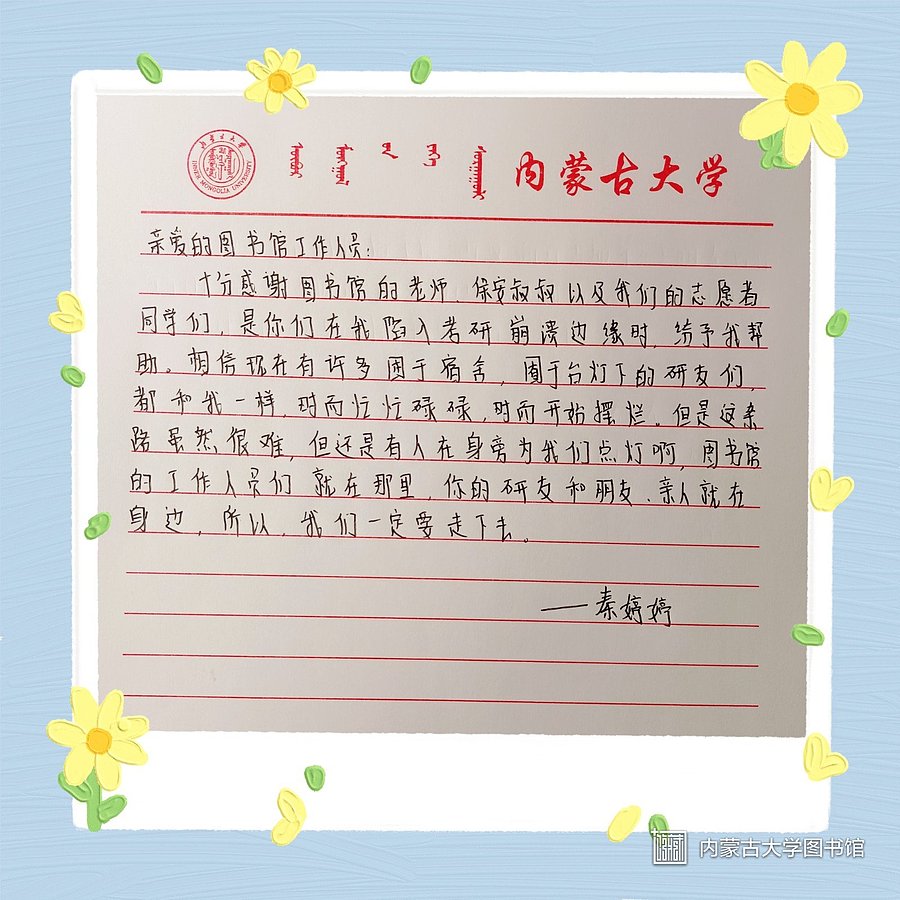 INNER MONGOLIA UNIVERSITY
内蒙古大学
亲爱的图书馆工作人员：
十分感谢图书馆的老师、保安叔叔以及我们的志愿者
同学们，是你们在我陷入考研崩溃边缘时，给予我帮
助。相信现在有许多困于宿舍，囿于台灯下的研友们，
都和我一样，时而忙忙碌碌，时而开始摆烂。但是这条
路虽然很难，但还是有人在身旁为我们点灯啊，图书馆
的工作人员们就在那里，你的研友和朋友、亲人就在
身边，所以，我们一定要走下去。
——秦婷婷
内蒙古大学图书馆